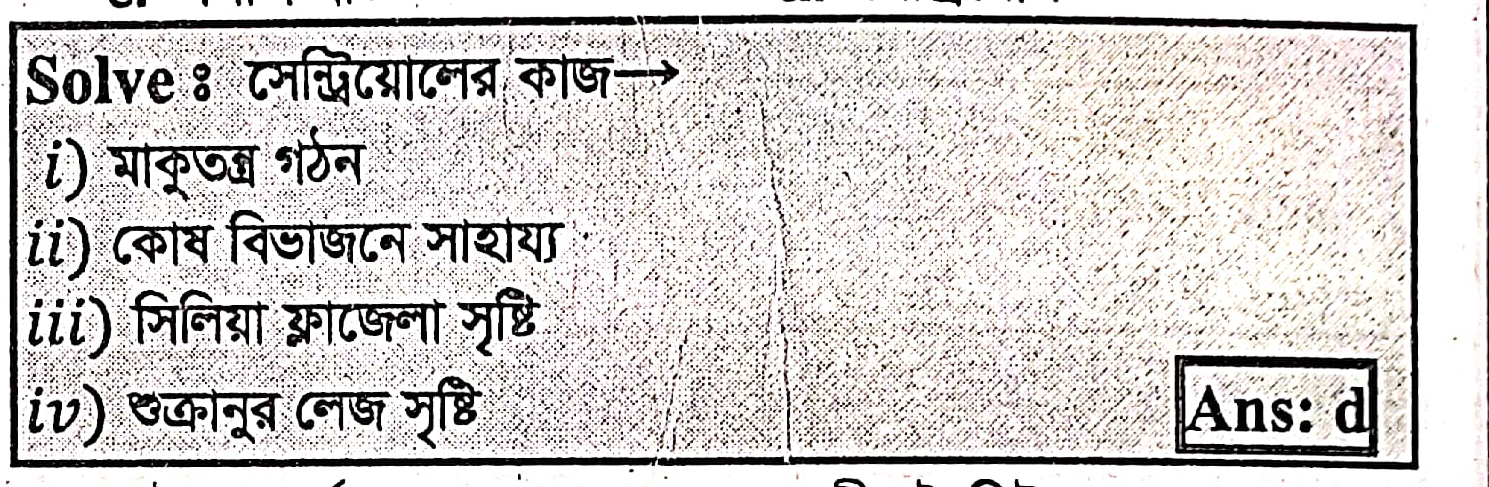 Solve ঃ সেন্ট্রিয়োলের কাজ→
i) মাকুতন্ত্র গঠন
ii) কোষ বিভাজনে সাহায্য
iii) সিলিয়া ফ্লাজেলা সৃষ্টি
iv) শুক্রানুর লেজ সৃষ্টি
Ans: d